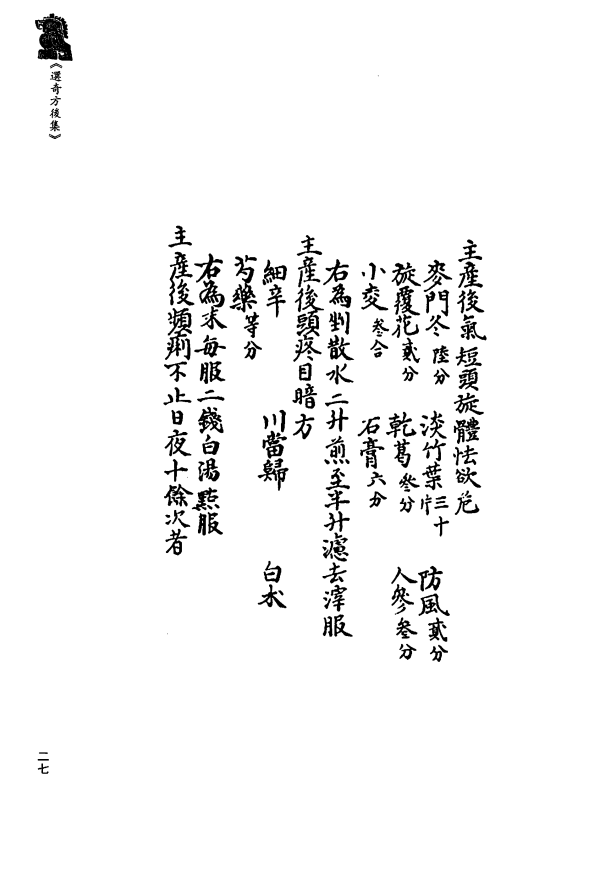 《選奇方後集》
主產後氣短頭旋體怯欲危
麥門冬陸分 淡竹葉三十片 防風貳分
旋覆花貳分 乾葛叁分 人參叁分
小麥叁合 石膏六分
右為剉散水二升煎至半升濾去滓服
主產後頭疼目暗方
細辛 川當歸 白朮
芍藥等分
右為末每服二錢白湯點服
主產後頻痢不止日夜十餘次者
二七